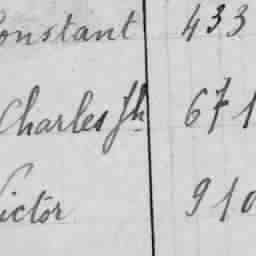 Constant 433
Charles Jh 671
Victor 910